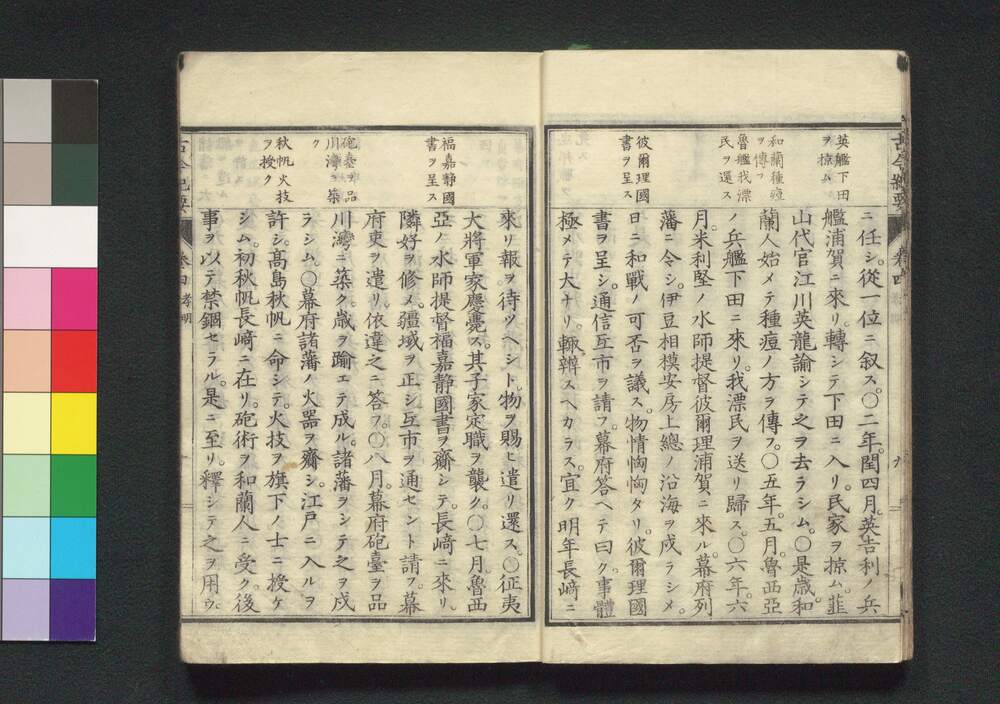 英艦下田
ヲ掠ム
和蘭種痘
ヲ傳フ
魯艦我漂
民ヲ還ス
彼爾理國
書ヲ呈ス
ニ任シ。從一位ニ叙ス。〇二年。閏四月。英吉利ノ兵
艦浦賀ニ來リ。轉シテ下田ニ入リ。民家ヲ掠ム。韮
山代官江川英龍諭シテ之ヲ去ラシム。〇是歳。和
蘭人始メテ種痘ノ方ヲ傳フ。〇五年。五月。魯西亞
ノ兵艦下田ニ來リ。我漂民ヲ送リ歸ス。〇六年。六
月。米利堅ノ水師提督彼爾理浦賀ニ來ル。幕府列
藩ニ令シ。伊豆相模安房上總ノ沿海ヲ戍ラシメ。
日ニ和戰ノ可否ヲ議ス。物情恟恟タリ。彼爾理國
書ヲ呈シ。通信互市ヲ請フ。幕府答ヘテ曰ク。事體
極メテ大ナリ。輙辨スヘカラス。宜ク明年長﨑ニ
古今紀要
卷四
九
福嘉静國
書ヲ呈ス
砲臺ヲ品
川灣ニ築
ク
秋帆火技
ヲ授ク
來リ報ヲ待ツヘシト。物ヲ賜ヒ遣リ還ス。〇征夷
大將軍家慶薨ス。其子家定職ヲ襲ク。〇七月。魯西
亞ノ水師提督福嘉静國書ヲ齎シテ。長﨑ニ來リ。
隣好ヲ修メ。疆域ヲ正シ互市ヲ通セント請フ。幕
府吏ヲ遣リ。依違之ニ答フ。〇八月。幕府砲臺ヲ品
川灣ニ築ク。歳ヲ踰エテ成ル。諸藩ヲシテ之ヲ戍
ラシム。〇幕府諸藩ノ火器ヲ齎シ。江戸ニ入ルヲ
許シ。髙島秋帆ニ命シテ。火技ヲ旗下ノ士ニ授ケ
シム。初秋帆長﨑ニ在リ。砲術ヲ和蘭人ニ受ク。後
事ヲ以テ禁錮セラル。是ニ至リ。釋シテ之ヲ用ウ。
古今紀要
卷四 孝明